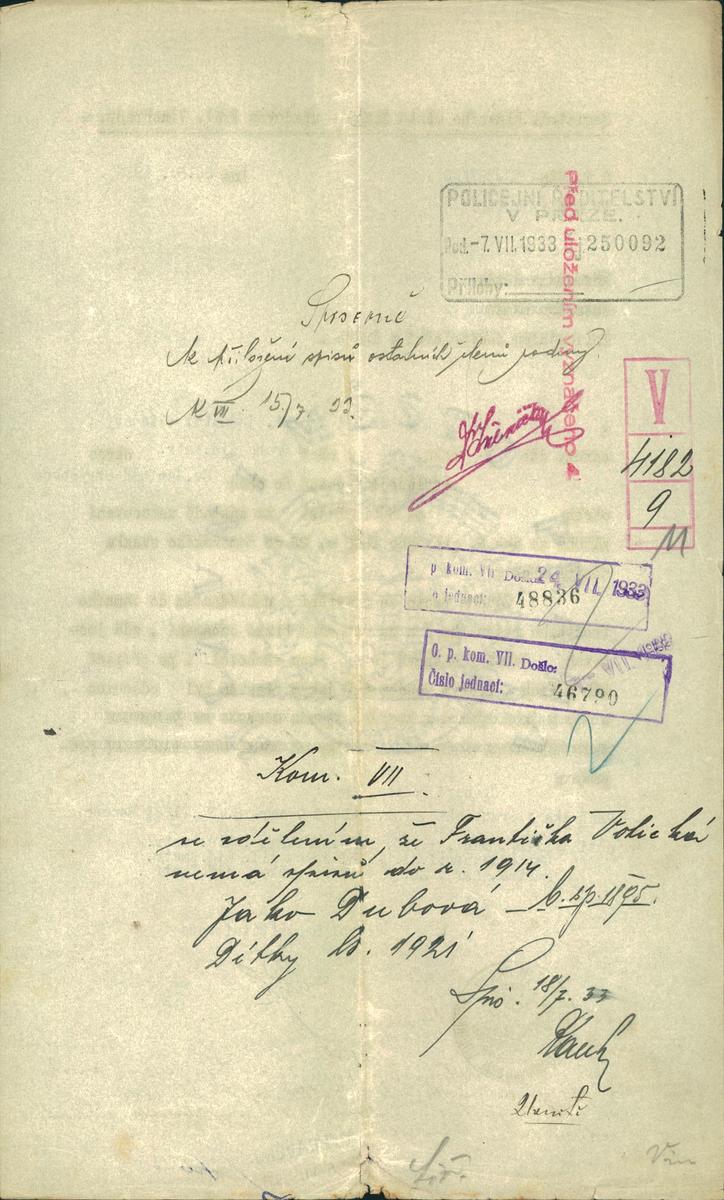 POLICEJNÍ ŘEDITELSTVÍ
V PRAZE.
Pod. -7. VII. 1933 čj. 250092
Přílohy:
Před uložením vyznačeno
K přiložení spisů ostatních členů rodiny.
K VII. 15/7. 33.
V
4182
9
M
p. kom. VII Došlo: 24. VII. 1933
o jednací: 48836
O. p. kom. VII. Došlo:
Číslo jednací: 46790
Kom. VII
se sdělením, že Františka Volická
nemá spisů do r. 1914.
Jako Dubová – b. sp. 1895.
Dítky b. 1921
18/7. 33